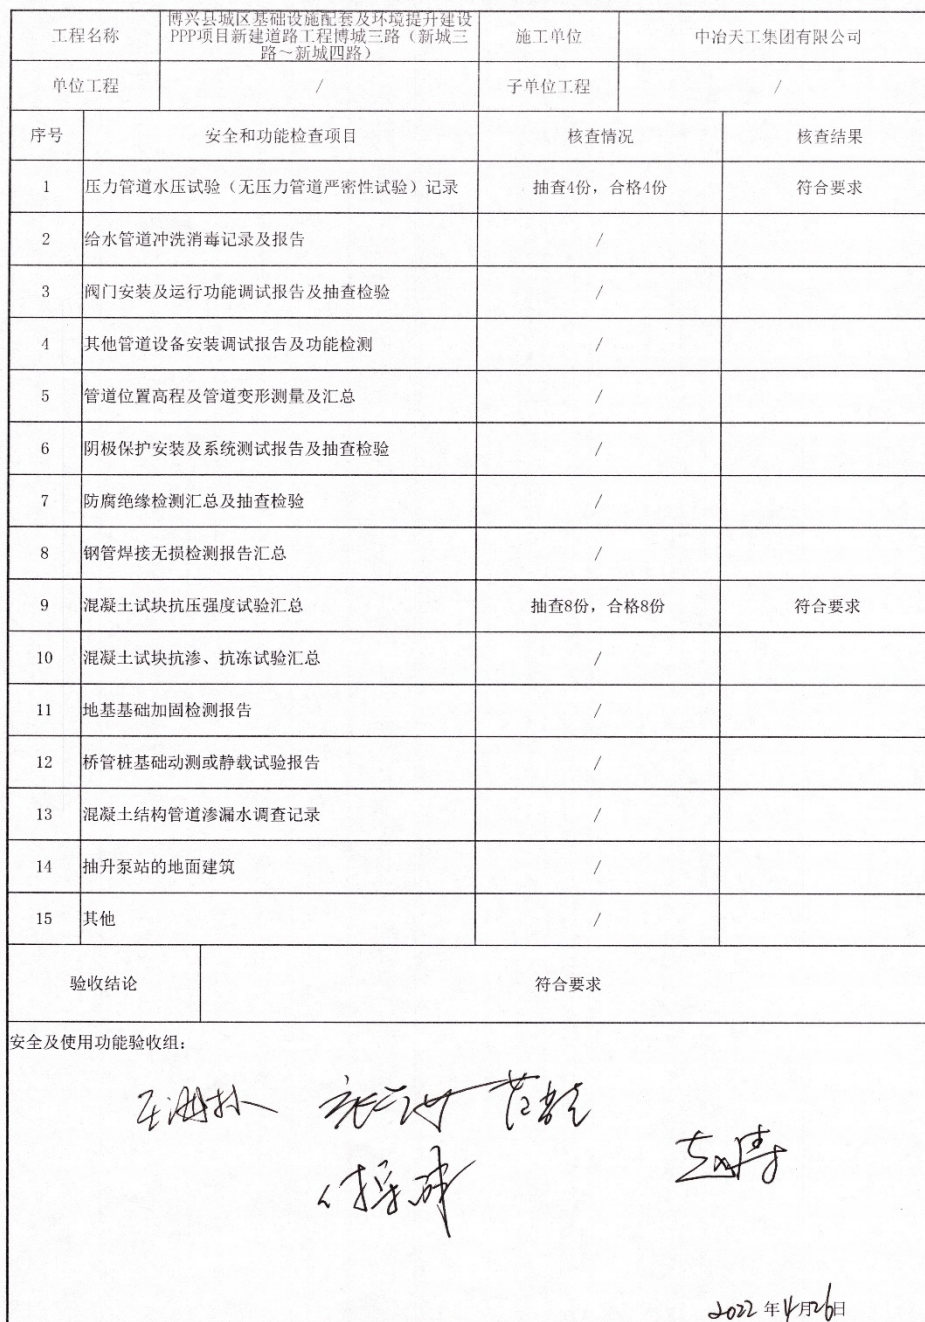 工程名称 博兴县城区基础设施配套及环境提升建设 施工单位 中冶天工集团有限公司
PPP项目新建道路工程博城三路（新城三
路～新城四路）
单位工程 / 子单位工程 /
序号 安全和功能检查项目 核查情况 核查结果
1 压力管道水压试验（无压力管道严密性试验）记录 抽查4份，合格4份 符合要求
2 给水管道冲洗消毒记录及报告 /
3 阀门安装及运行功能调试报告及抽查检验 /
4 其他管道设备安装调试报告及功能检测 /
5 管道位置高程及管道变形测量及汇总 /
6 阴极保护安装及系统测试报告及抽查检验 /
7 防腐绝缘检测汇总及抽查检验 /
8 钢管焊接无损检测报告汇总 /
9 混凝土试块抗压强度试验汇总 抽查8份，合格8份 符合要求
10 混凝土试块抗渗、抗冻试验汇总 /
11 地基基础加固检测报告 /
12 桥管桩基础动测或静载试验报告 /
13 混凝土结构管道渗漏水调查记录 /
14 抽升泵站的地面建筑 /
15 其他 /
验收结论 符合要求
安全及使用功能验收组：
2022年4月26日